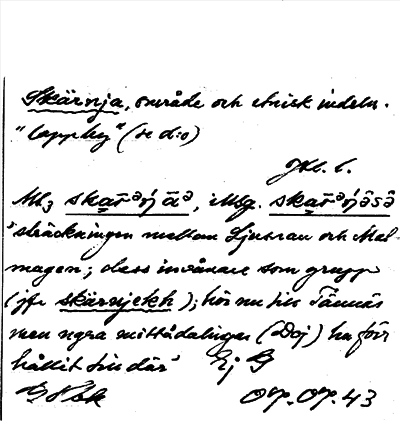 Skärvja, område och etnisk indeln.
"lappby" (se d:o)
Jkl. l.
Ml₃ ska̱r̄ᵊŋ́ āᵊ, illg. ska̱r̄ᵊŋ́ásə̂
'sträckningen mellan Ljusnan och Mal-
magen; dess invånare som grupp
(jfr skärvjekh); hör nu till Tännäs
men några mittådalingar (Doj) ha förr
hållit till där' Ej G
O.P. O.P. 43